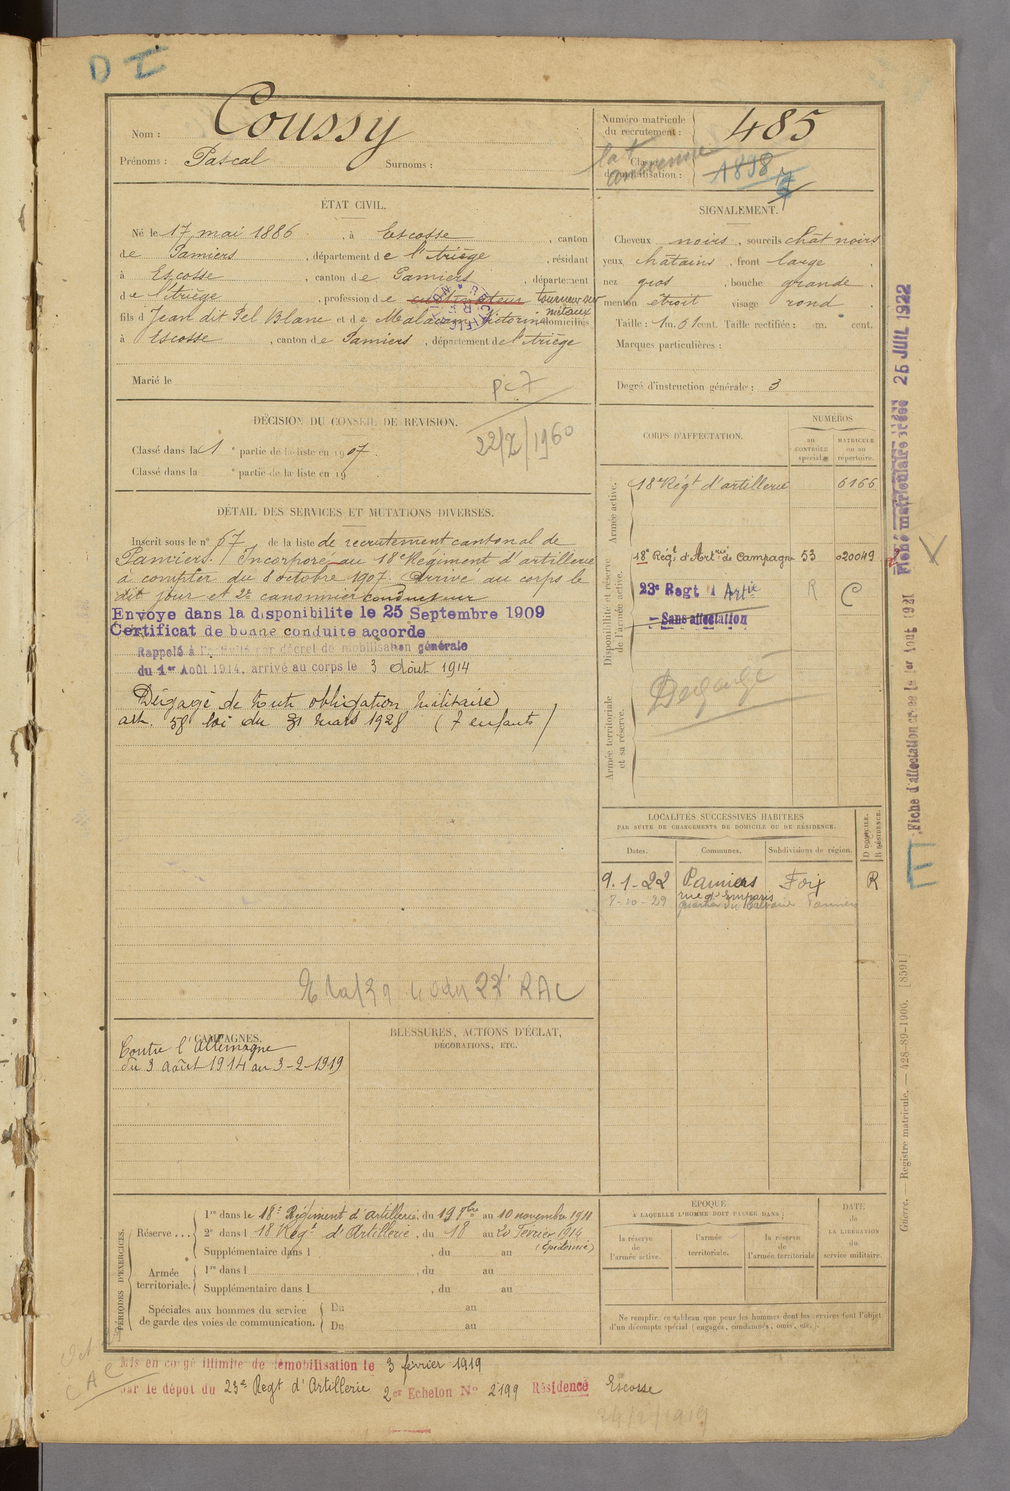 D I
Nom : Coussy
Prénoms : Pascal Surnoms :
Numéro matricule
du recrutement : 485
Classe
de mobilisation : 1898
ÉTAT CIVIL.
Né le 17 mai 1886, à Escosse, canton
de Pamiers, département de l'Ariège, résidant
à Escosse, canton de Pamiers, département
de l'Ariège, profession de cultivateur tourneur sur
métaux
fils d Jean dit Pel Blanc et de Malacam Victorine domiciliés
à Escosse, canton de Pamiers, département de l'Ariège
Marié le
SIGNALEMENT.
Cheveux noirs, sourcils chât noirs
yeux châtains, front large,
nez gros, bouche grande,
menton étroit visage rond.
Taille : 1m. 61 cent. Taille rectifiée : m. cent.
Marques particulières :
Degré d'instruction générale : 3
DÉCISION DU CONSEIL DE RÉVISION.
22/2/1960
Classé dans la 1e partie de la liste en 1907.
Classé dans la e partie de la liste en 19
DÉTAIL DES SERVICES ET MUTATIONS DIVERSES.
Inscrit sous le n° 67 de la liste de recrutement cantonal de
Pamiers. Incorporé au 18e Régiment d'artillerie
à compter du 8 octobre 1907. Arrivé au corps le
dit jour et 2e canonnier conducteur
Envoye dans la disponibilite le 25 Septembre 1909
Certificat de bonne conduite accorde
Rappelé à l'activité par décret de mobilisation générale
du 1er Août 1914, arrivé au corps le 3 Août 1914
Dégagé de toute obligation Militaire
art. 58 loi du 31 mars 1928 (7 enfants)
CORPS D'AFFECTATION.
NUMÉROS
AU
CONTRÔLE
spécial.
MATRICULE
ou au
répertoire.
Armée active.
18e Régt d'artillerie 6166
Disponibilité et réserve
de l'armée active.
18e Régt d'Artrie de Campagne 53 020049
23e Regt d'Artie R C
Sans affectation
Armée territoriale
et sa réserve.
Dégagé
LOCALITÉS SUCCESSIVES HABITÉES
PAR SUITE DE CHANGEMENTS DE DOMICILE OU DE RÉSIDENCE.
Dates. Communes. Subdivisions de région. D DOMICILE. R RÉSIDENCE.
9-1-22 Pamiers Foix R
8-10-29 quartier du Calvaire Pamiers
CAMPAGNES.
Contre l'Allemagne
du 3 Août 1914 au 3-2-1919
BLESSURES, ACTIONS D'ÉCLAT,
DÉCORATIONS, ETC.
PÉRIODES D'EXERCICES.
Réserve... 1re dans le 18e Régiment d'artillerie, du 19 8bre au 10 novembre 1911
2e dans l 18 Régt d'Artillerie, du 18 au 20 Février 1914
(épidémie)
Supplémentaire dans l , du au
Armée
territoriale. 1re dans l , du au
Supplémentaire dans l , du au
Spéciales aux hommes du service
de garde des voies de communication. Du au
Du au
ÉPOQUE
À LAQUELLE L'HOMME DOIT PASSER DANS :
la réserve
de
l'armée active.
l'armée
territoriale.
la réserve
de
l'armée territoriale
DATE
de
LA LIBÉRATION
du
service militaire.
Ne remplir ce tableau que pour les hommes dont les services font l'objet
d'un décompte spécial (engagés, condamnés, omis, etc.).
Mis en congé illimité de démobilisation le 3 février 1919
par le dépot du 23e Regt d'Artillerie 2er Echelon N° 2199 Résidence Escosse
Fiche matriculaire créée 26 JUIL 1922
Fiche d'affectation créée le 1er Aout 1921
Guerre. — Registre matricule. — 428-89-1906. [8591]